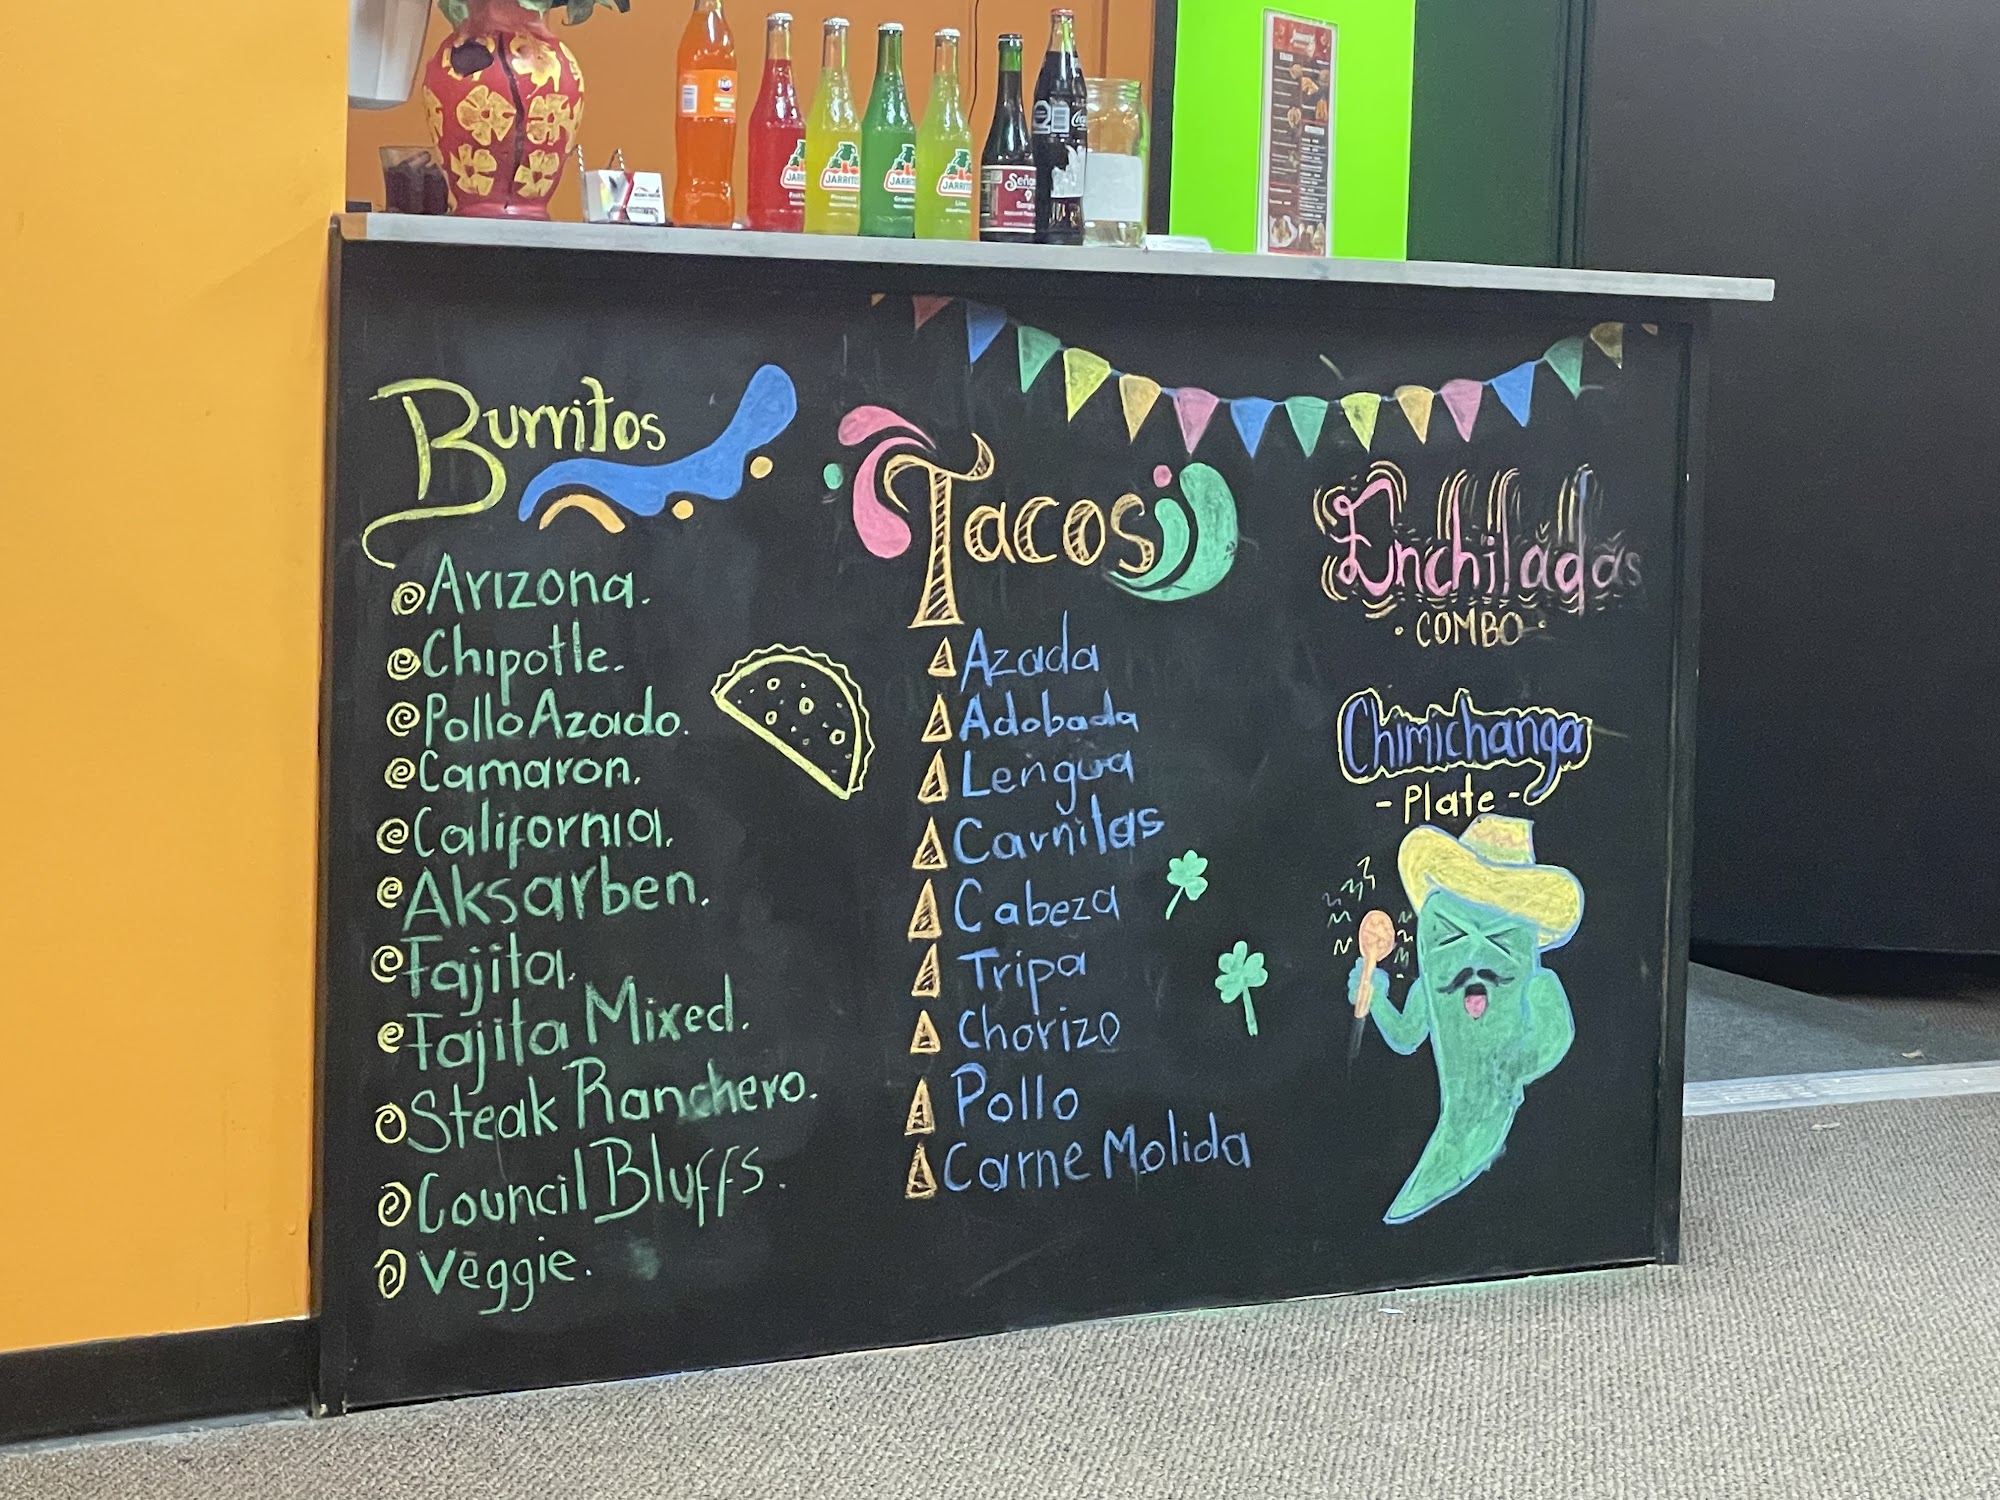 JARRITOS
JARRITOS
Pineapple
JARRITOS
JARRITOS
Lime
Burritos
Arizona.
Chipotle.
Pollo Azado.
Camaron.
California.
Aksarben.
Fajita.
Fajita Mixed.
Steak Ranchero.
Council Bluffs.
Veggie.
Tacos
Azada
Adobada
Lengua
Carnitas
Cabeza
Tripa
Chorizo
Pollo
Carne Molida
Enchiladas
• COMBO •
Chimichanga
- Plate -